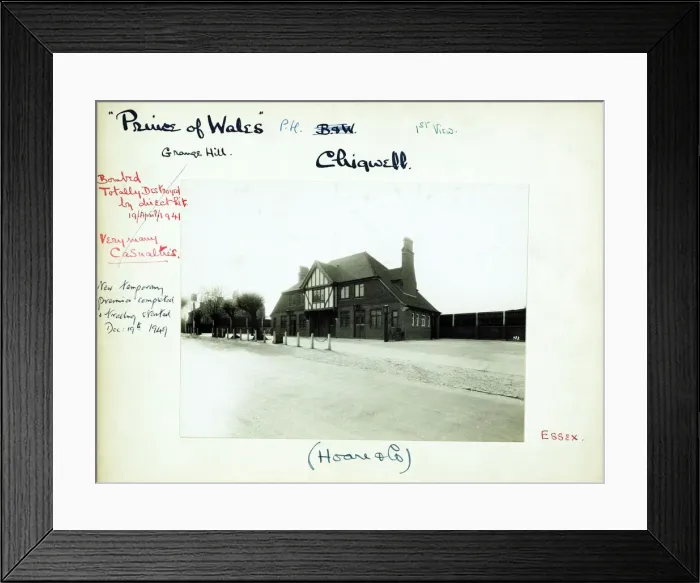 "Prince of Wales" P.H. B&W. 1st View.
Grange Hill.
Chigwell.
Bombed
Totally Destroyed
by direct hit
19/April/1941
Very many
Casualties.
New temporary
premises completed
& trading started
Dec: 19th 1949
Essex.
(Hoare & Co)